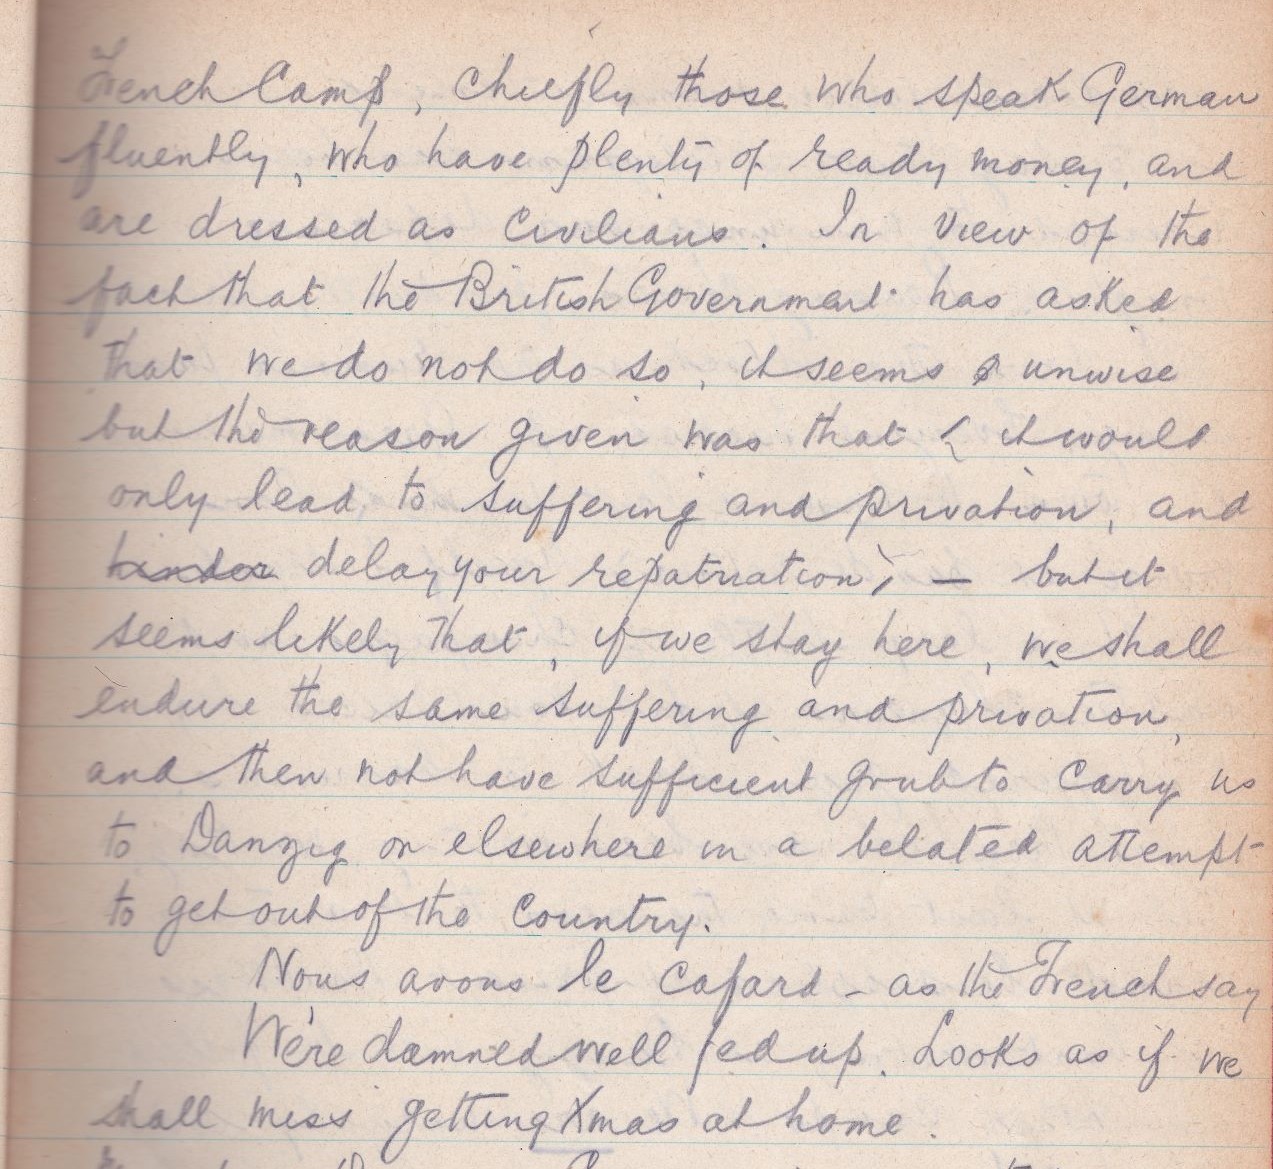 French Camp, chiefly those who speak German
fluently, who have plenty of ready money, and
are dressed as civilians. In view of the
fact that the British Government has asked
that we do not do so, it seems unwise
but the reason given was that ( it would
only lead to suffering and privation, and
hinder delay your repatriation) — but it
seems likely that, if we stay here, we shall
endure the same suffering and privation,
and then not have sufficient grub to carry us
to Danzig or elsewhere in a belated attempt
to get out of the country.
Nous avons le cafard - as the French say
We're damned well fed up. Looks as if we
shall miss getting Xmas at home.